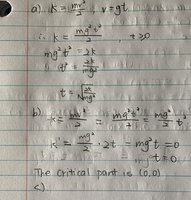 a) K = mv²/2 , v = gt
∴ K = mg²t²/2 , t ≥ 0
mg²t² = 2K
t² = 2K/mg²
t = √(2K/mg²)
b) K = mv²/2 = mg²t²/2 = mg²/2 t²
K' = mg²/2 · 2t = mg²t = 0
t = 0
The critical part is (0,0)
c)